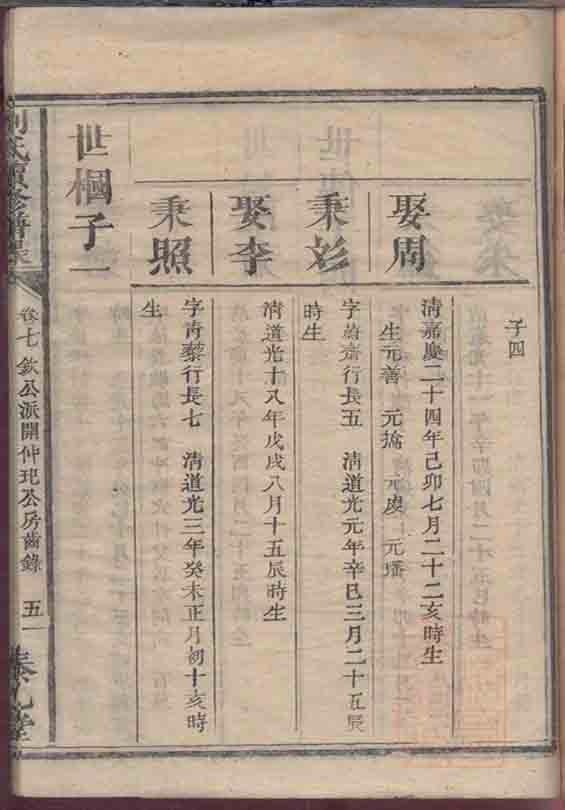 子四
娶周
清嘉慶二十四年己卯七月二十二亥時生
生元善 元擒 元虔 元播
秉彣
字蔚齋行長五 清道光元年辛巳三月二十五辰
時生
娶李
清道光十八年戊戌八月十五辰時生
秉照
字青藜行長七 清道光三年癸未正月初十亥時
生
世槶子一
氏續修譜
卷七 欽公派開仲玘公房齒錄 五一
堂